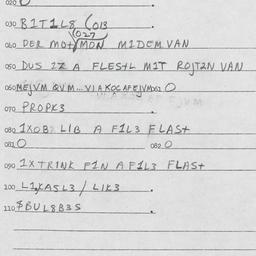 020
030 BITIL8 (013
(027
040 DER MOT MON MIDEM VAN
050 DUS IZ A FLESTL MIT ROJTZN VAN
060 MEJVM QVM...VIAKOCAFEJVM 061 O
070 PROPK3
080 1XOB LIB A FIL3 FLAST
081 O 082 O
090 IXTRINK FIN A FIL3 FLAST
100 LI,KASL3 / LIK3
110 $BUL8B3S